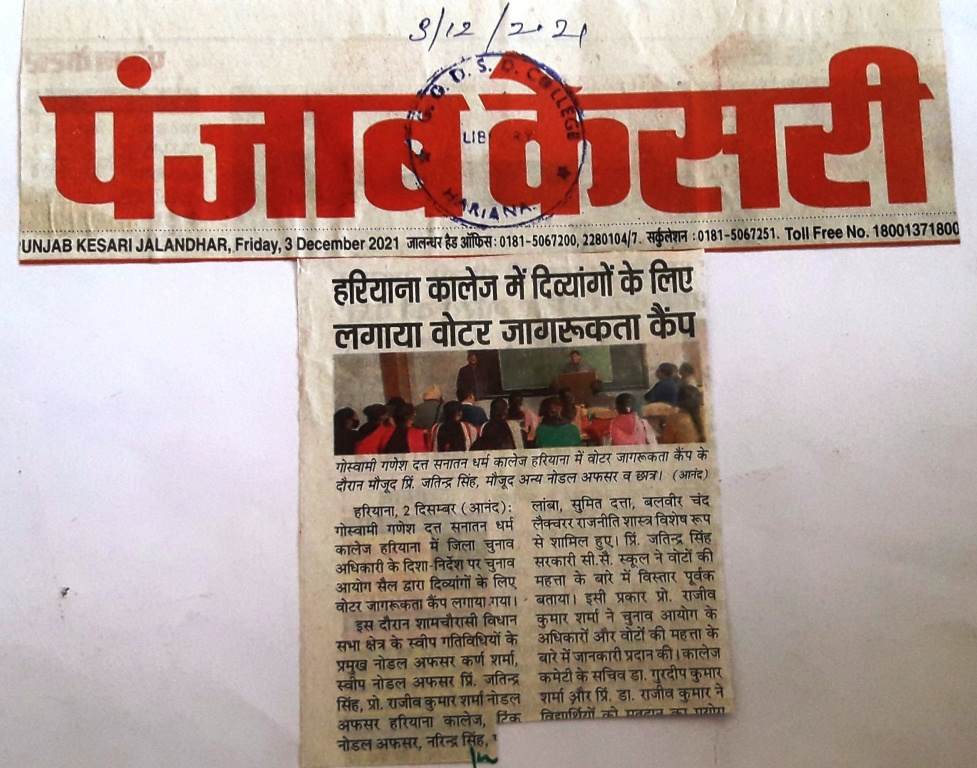 3/12/2021
पंजाब केसरी
G. G. D. S. D. COLLEGE
LIBRARY
HARIANA.
PUNJAB KESARI JALANDHAR, Friday, 3 December 2021 जालन्धर हैड ऑफिस : 0181-5067200, 2280104/7. सर्कुलेशन : 0181-5067251. Toll Free No. 18001371800
हरियाना कालेज में दिव्यांगों के लिए
लगाया वोटर जागरूकता कैंप
गोस्वामी गणेश दत्त सनातन धर्म कालेज हरियाना में वोटर जागरूकता कैंप के
दौरान मौजूद प्रिं. जतिन्द्र सिंह, मौजूद अन्य नोडल अफसर व छात्र। (आनंद)
हरियाना, 2 दिसम्बर (आनंद):
गोस्वामी गणेश दत्त सनातन धर्म
कालेज हरियाना में जिला चुनाव
अधिकारी के दिशा-निर्देश पर चुनाव
आयोग सैल द्वारा दिव्यांगों के लिए
वोटर जागरूकता कैंप लगाया गया।
इस दौरान शामचौरासी विधान
सभा क्षेत्र के स्वीप गतिविधियों के
प्रमुख नोडल अफसर कर्ण शर्मा,
स्वीप नोडल अफसर प्रिं. जतिन्द्र
सिंह, प्रो. राजीव कुमार शर्मा नोडल
अफसर हरियाना कालेज, टिंक
नोडल अफसर, नरिन्द्र सिंह,
लांबा, सुमित दत्ता, बलवीर चंद
लैक्चरर राजनीति शास्त्र विशेष रूप
से शामिल हुए। प्रिं. जतिन्द्र सिंह
सरकारी सी.सै. स्कूल ने वोटों की
महत्ता के बारे में विस्तार पूर्वक
बताया। इसी प्रकार प्रो. राजीव
कुमार शर्मा ने चुनाव आयोग के
अधिकारों और वोटों की महत्ता के
बारे में जानकारी प्रदान की। कालेज
कमेटी के सचिव डा. गुरदीप कुमार
शर्मा और प्रिं. डा. राजीव कुमार ने
विद्यार्थियों को मतदान का प्रयोग